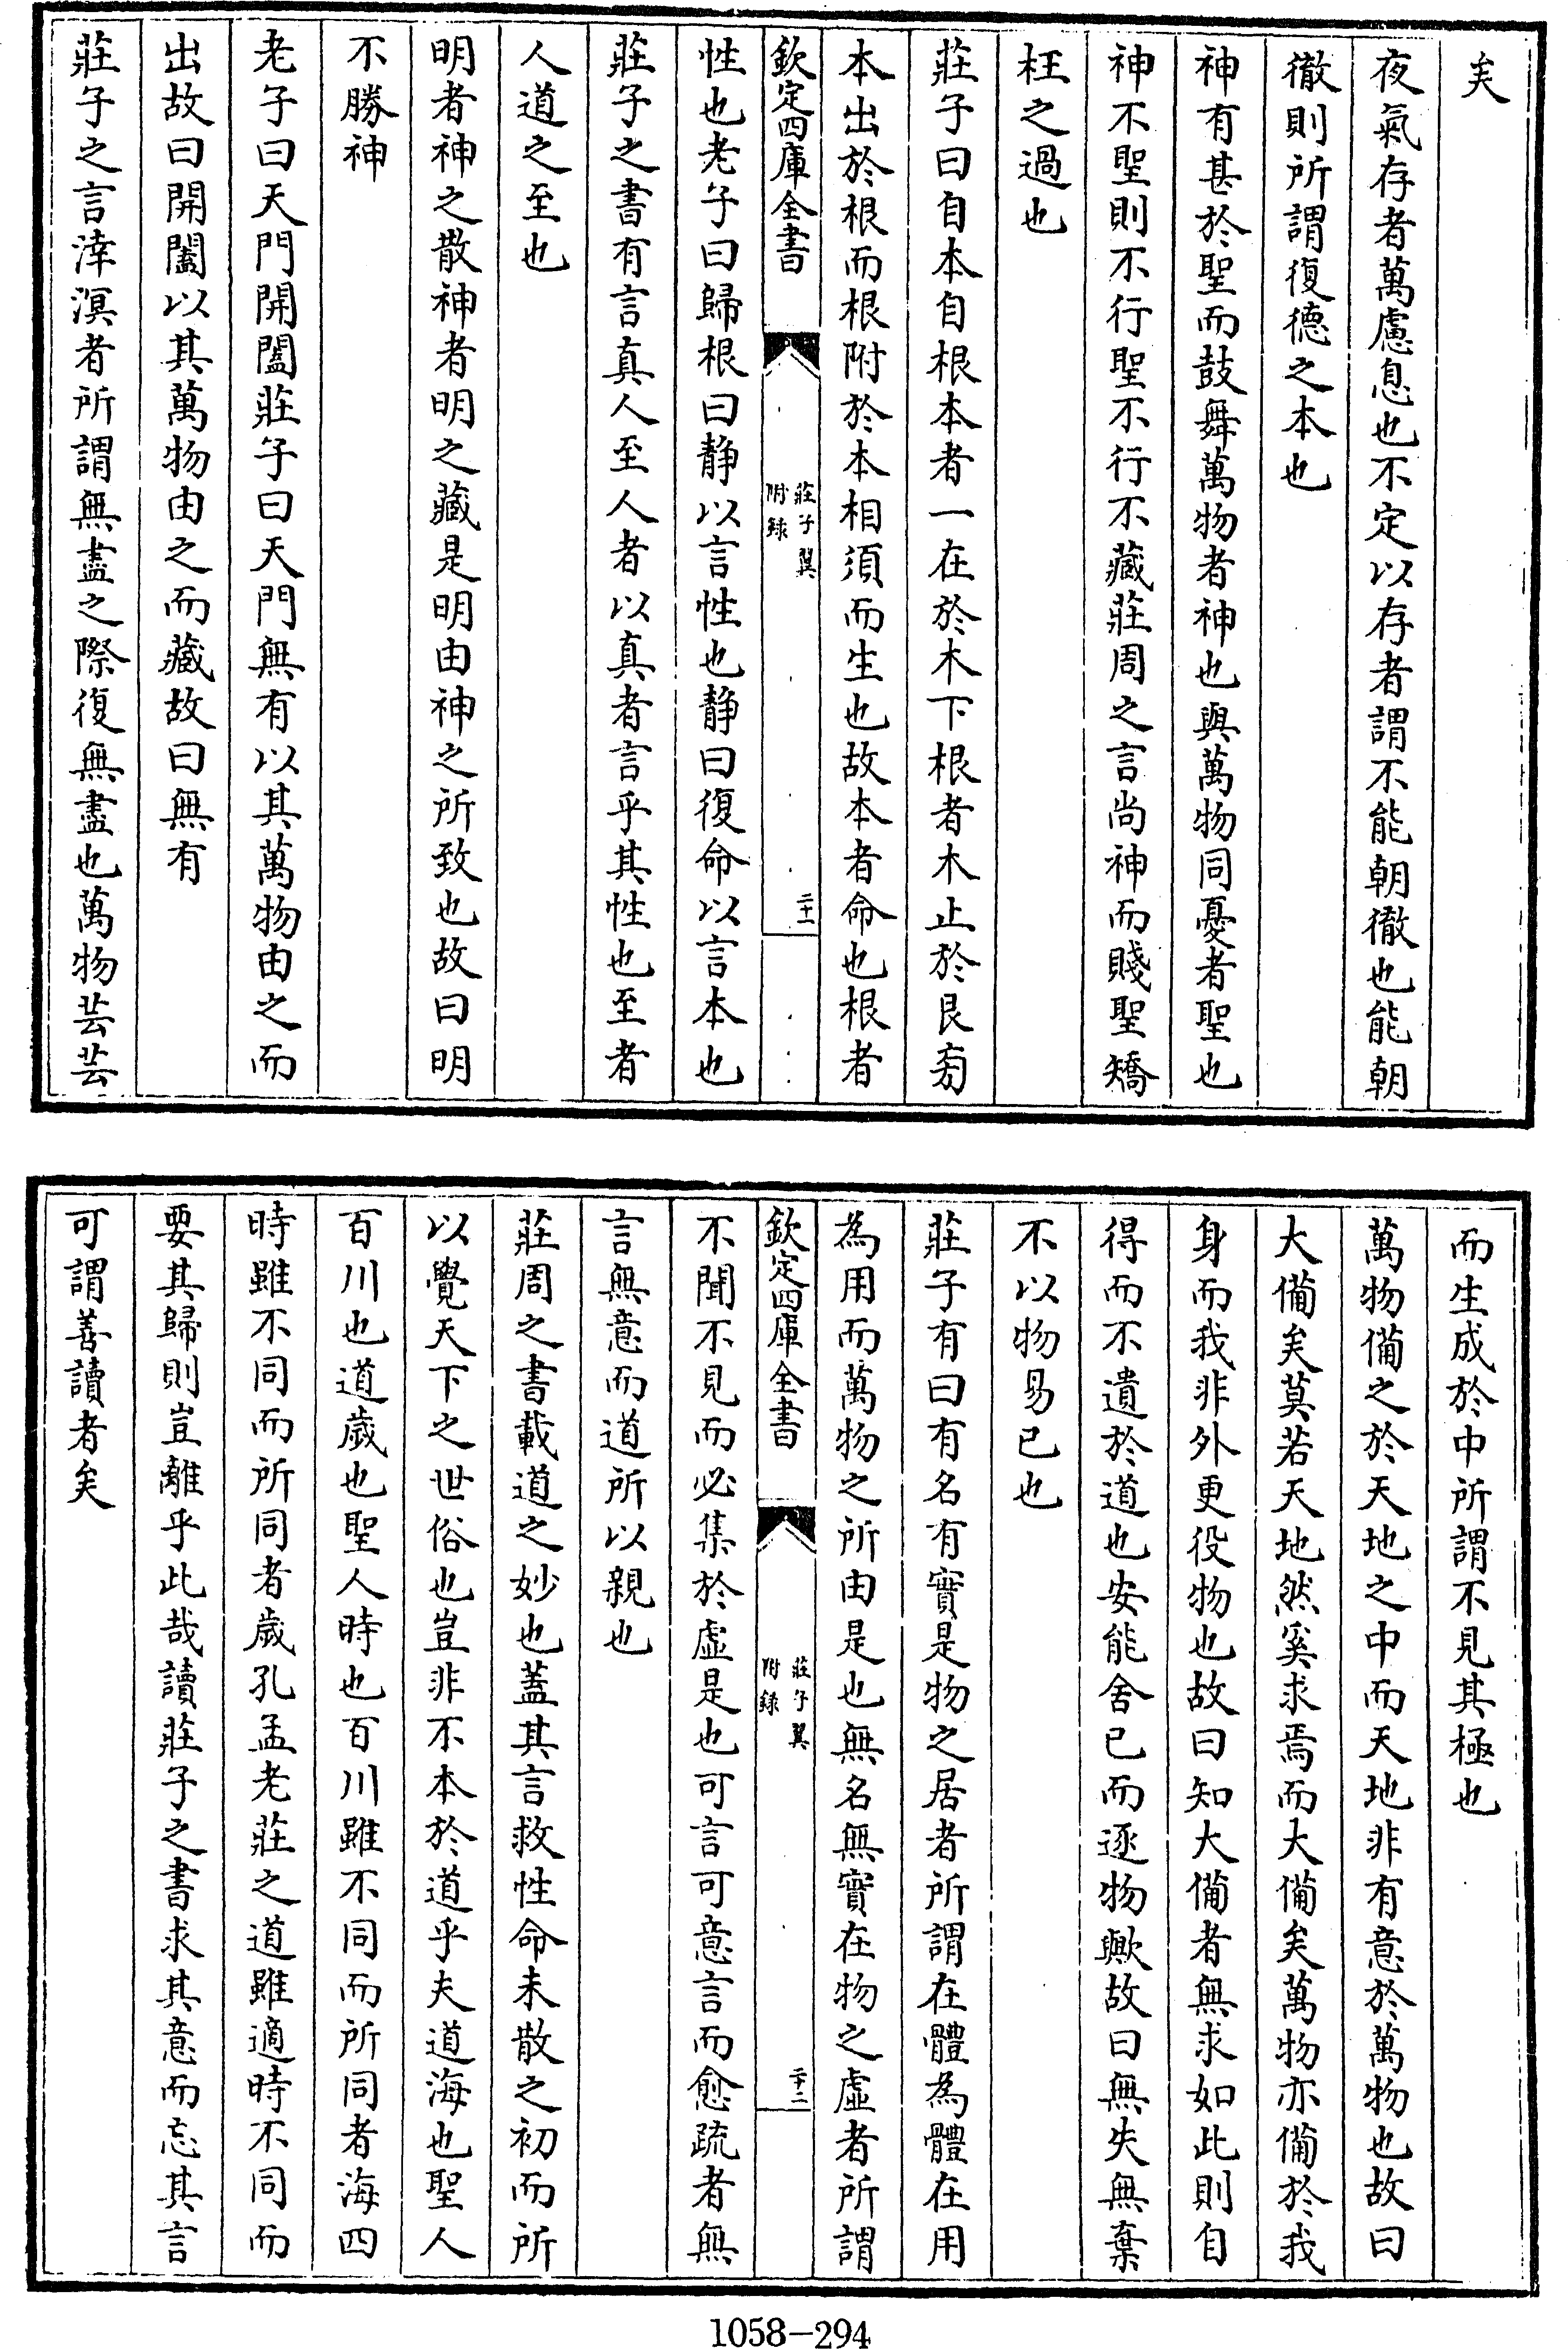 矣
夜氣存者萬慮息也不定以存者謂不能朝徹也能朝
徹則所謂復德之本也
神有甚於聖而鼓舞萬物者神也與萬物同憂者聖也
神不聖則不行聖不行不藏莊周之言尚神而賤聖矯
枉之過也
莊子曰自本自根本者一在於木下根者木止於艮㫄
本出於根而根附於本相須而生也故本者命也根者
欽定四庫全書
莊子翼
附錄
二十一
性也老子曰歸根曰静以言性也静曰復命以言本也
莊子之書有言真人至人者以真者言乎其性也至者
人道之至也
明者神之散神者明之藏是明由神之所致也故曰明
不勝神
老子曰天門開闔莊子曰天門無有以其萬物由之而
出故曰開闔以其萬物由之而藏故曰無有
莊子之言涬溟者所謂無盡之際復無盡也萬物芸芸
而生成於中所謂不見其極也
萬物備之於天地之中而天地非有意於萬物也故曰
大備矣莫若天地然奚求焉而大備矣萬物亦備於我
身而我非外更役物也故曰知大備者無求如此則自
得而不遺於道也安能舍已而逐物歟故曰無失無棄
不以物易已也
莊子有曰有名有實是物之居者所謂在體為體在用
為用而萬物之所由是也無名無實在物之虛者所謂
欽定四庫全書
莊子翼
附錄
二十二
不聞不見而必集於虛是也可言可意言而愈疏者無
言無意而道所以親也
莊周之書載道之妙也蓋其言救性命未散之初而所
以覺天下之世俗也豈非不本於道乎夫道海也聖人
百川也道歲也聖人時也百川雖不同而所同者海四
時雖不同而所同者歲孔孟老莊之道雖適時不同而
要其歸則豈離乎此哉讀莊子之書求其意而忘其言
可謂善讀者矣
1058-294